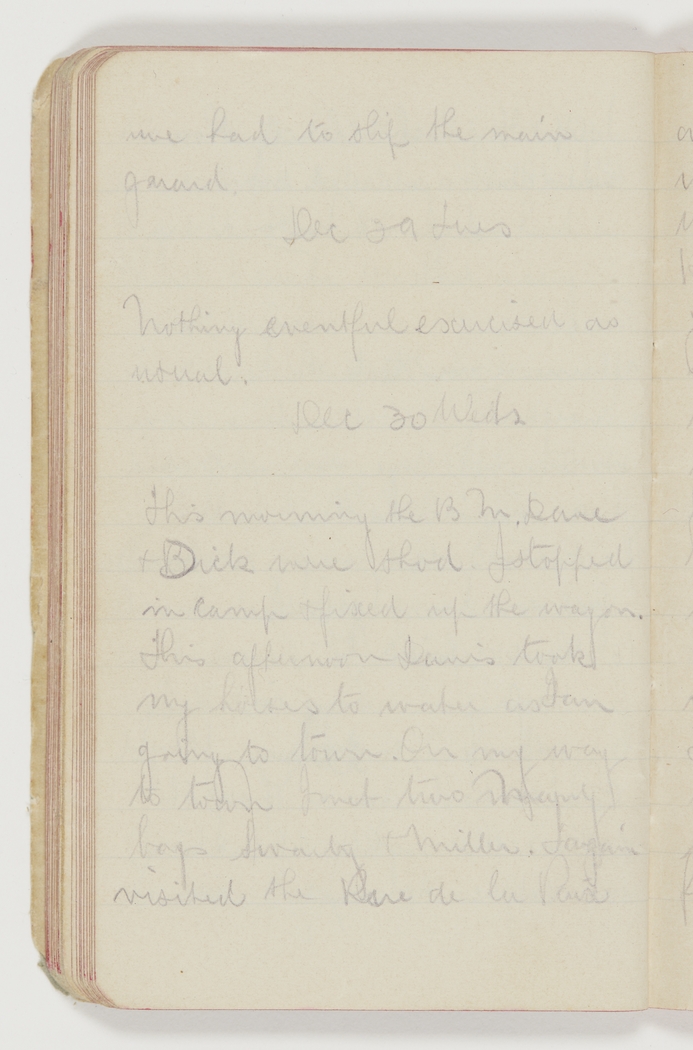 we had to slip the main
guard.
Dec 29 Tues
Nothing eventful exercised as
usual.
Dec 30 Weds
This morning the B M.
& Dick were shod. I stopped
in camp & fixed up the wagon.
This afternoon took
my horses to water as I am
going to town. On my way
to town I met two
boys & Miller. I again
visited the Rue de la Paix